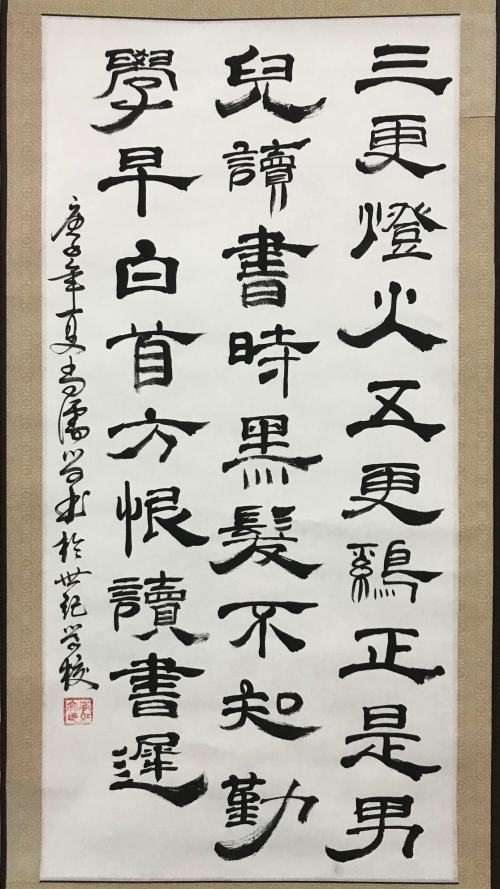 三更燈火五更鷄正是男
兒讀書時黑髮不知勤
學早白首方恨讀書遲
庚子年夏尚濡学书於世纪学校